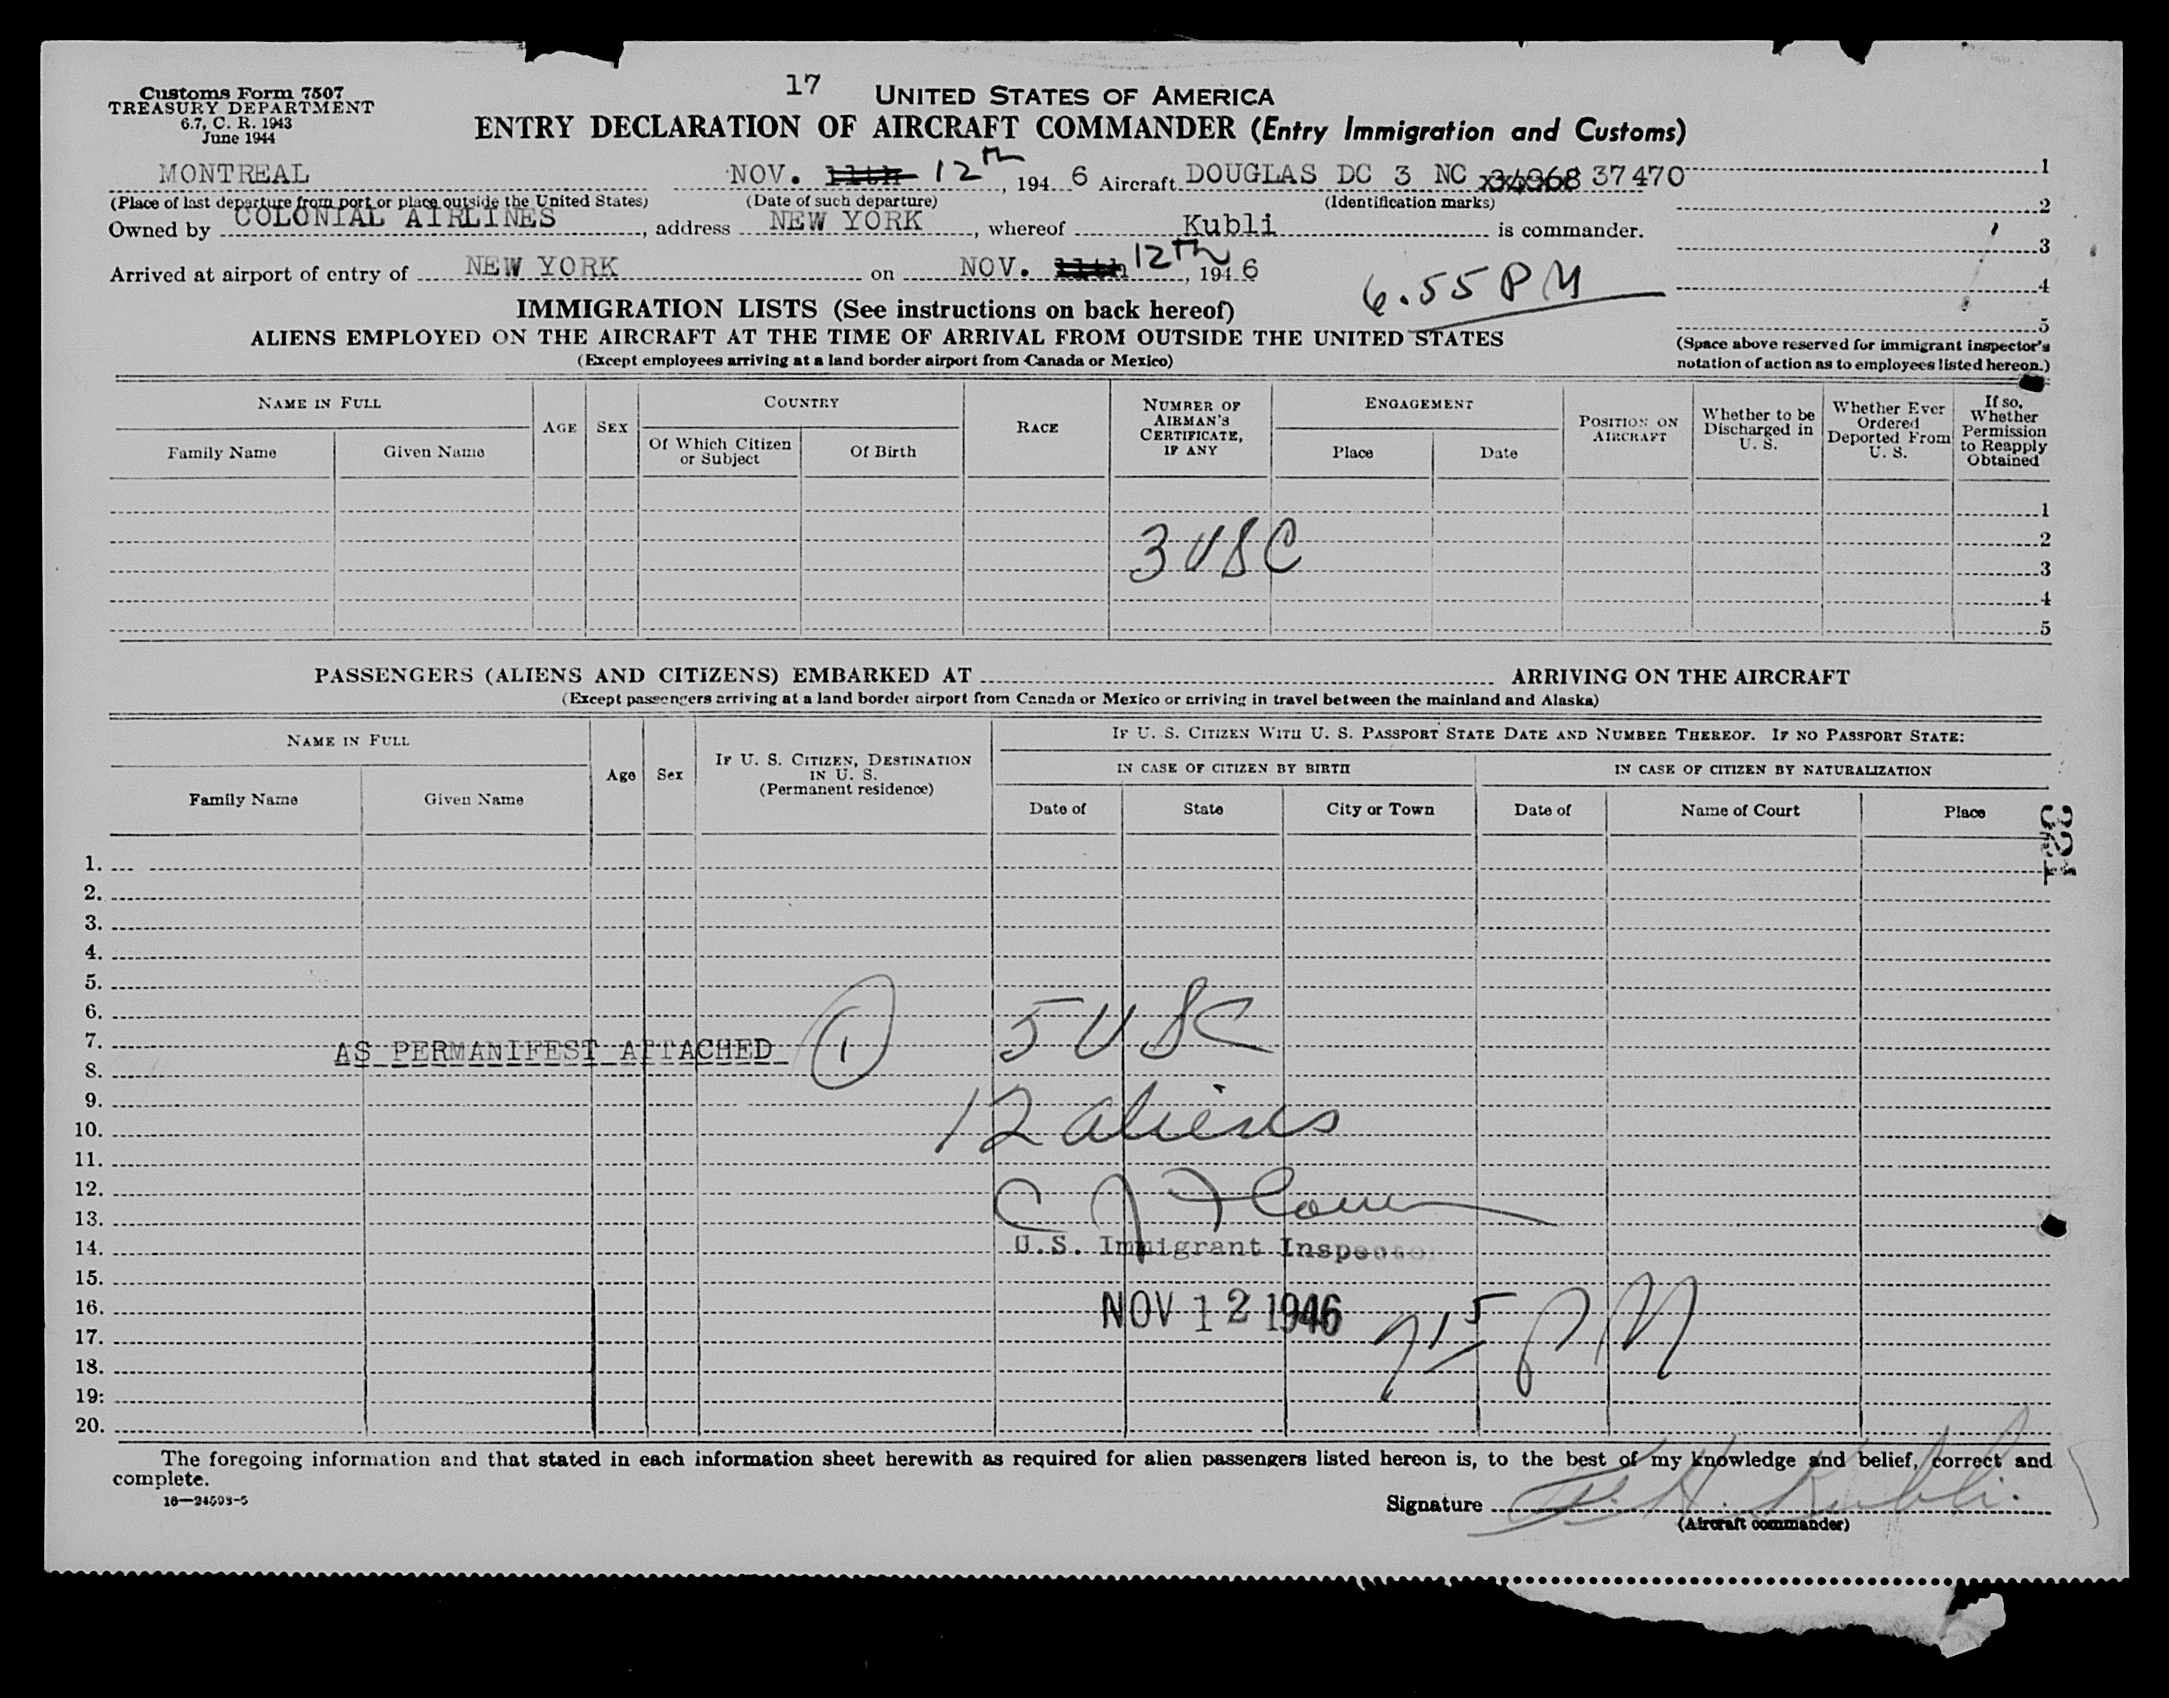 17
Customs Form 7507
TREASURY DEPARTMENT
6.7, C. R. 1943
June 1944
UNITED STATES OF AMERICA
ENTRY DECLARATION OF AIRCRAFT COMMANDER (Entry Immigration and Customs)
MONTREAL NOV. 11th 12th, 194 6 Aircraft DOUGLAS DC 3 NC 34968 37470
(Place of last departure from port or place outside the United States) (Date of such departure) (Identification marks)
Owned by COLONIAL AIRLINES, address NEW YORK, whereof Kubli is commander.
Arrived at airport of entry of NEW YORK on NOV. 11th 12Th, 194 6
6.55 PM
1
2
3
4
5
(Space above reserved for immigrant inspector's
notation of action as to employees listed hereon.)
IMMIGRATION LISTS (See instructions on back hereof)
ALIENS EMPLOYED ON THE AIRCRAFT AT THE TIME OF ARRIVAL FROM OUTSIDE THE UNITED STATES
(Except employees arriving at a land border airport from Canada or Mexico)
NAME IN FULL
Family Name Given Name
AGE SEX
COUNTRY
Of Which Citizen or Subject Of Birth
RACE
NUMBER OF AIRMAN'S CERTIFICATE, IF ANY
ENGAGEMENT
Place Date
POSITION ON AIRCRAFT
Whether to be Discharged in U. S.
Whether Ever Ordered Deported From U. S.
If so, Whether Permission to Reapply Obtained
1
2
3
4
5
3 USC
PASSENGERS (ALIENS AND CITIZENS) EMBARKED AT ARRIVING ON THE AIRCRAFT
(Except passengers arriving at a land border airport from Canada or Mexico or arriving in travel between the mainland and Alaska)
NAME IN FULL
Family Name Given Name
Age Sex
IF U. S. CITIZEN, DESTINATION IN U. S.
(Permanent residence)
IF U. S. CITIZEN WITH U. S. PASSPORT STATE DATE AND NUMBER THEREOF. IF NO PASSPORT STATE:
IN CASE OF CITIZEN BY BIRTH IN CASE OF CITIZEN BY NATURALIZATION
Date of State City or Town Date of Name of Court Place
321
1.
2.
3.
4.
5.
6.
7.
AS PERMANIFEST ATTACHED 1 5 USC
8.
9.
10. 12 aliens
11.
12.
13.
14. U.S. Immigrant Inspector
15.
16. NOV 12 1946 715 PM
17.
18.
19:
20.
The foregoing information and that stated in each information sheet herewith as required for alien passengers listed hereon is, to the best of my knowledge and belief, correct and
complete.
16—24593-5
Signature H. Kubli.
(Aircraft commander)